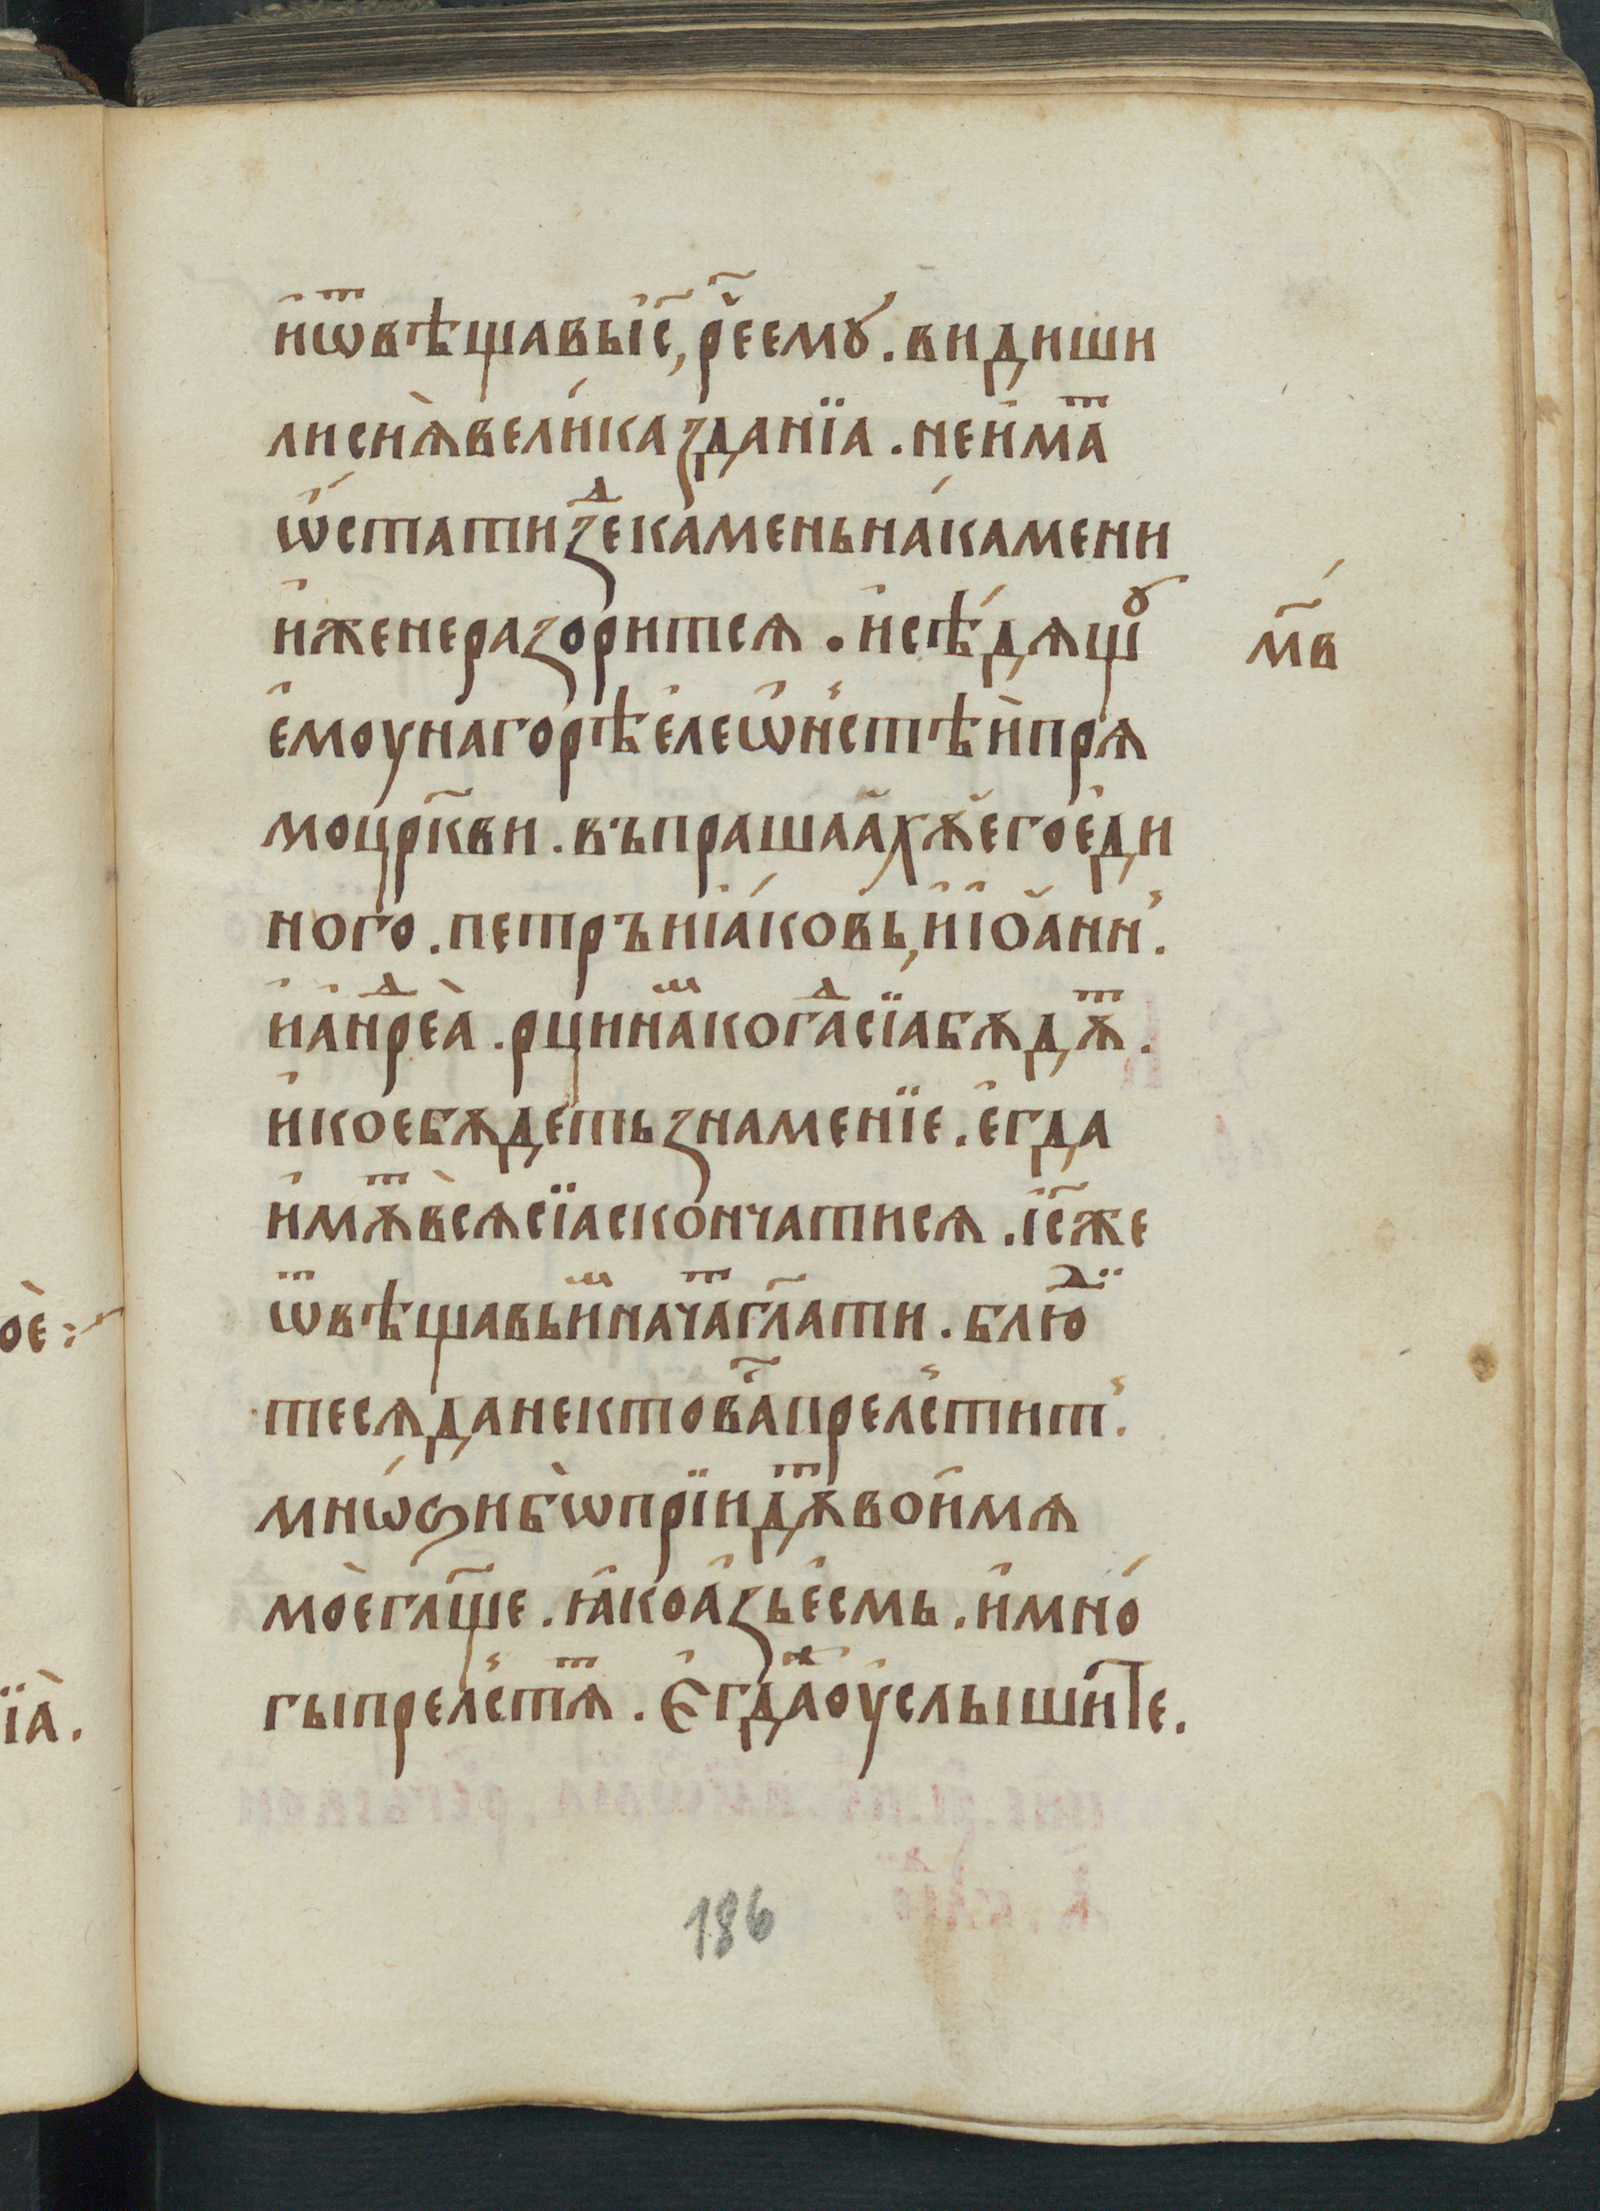 и҆ѿвѣщавыі҆с҃, рⷱ҇еемꙋ . видиши
лисиѧ҆̀вели́казданїа . неи҆маⷮ
ѡ҆́статиз̾деⷣка́меньнака́мени
и҆женеразоритсѧ . и҆сѣ́дѧщꙋ м҃в
є҆моунагорѣє҆леѡ҆н̾стѣи҆прѧ
моцр҃кви . въпрашаа҆хѫ҆єгоє҆ди
ного . петръиі҆а́ковь, и҆і҆ѻа҆нн̾ .
и҆а҆нⷣре́а . рцинаⷨкогаⷣсїабѫдѫⷮ .
и҆коебѫдетьзнаменїе . є҆гда
и҆мѫⷮвсѧ̀сїаскончатисѧ . і҆с҃же
ѿвѣщавьиⷨначаⷮгл҃ати . блюⷣ
тесѧданектова҃прел̾стит̾ .
мнѡ́ѕибѡ̀прїидѫⷮвои҆мѧ
мо̀егл҃ще . ꙗ҆коа҆зье҆смь . и҆мно́
гыпрел̾стѧⷮ . Є҆гдаⷤоу҆слышите .
186
ое :
їа̀ .